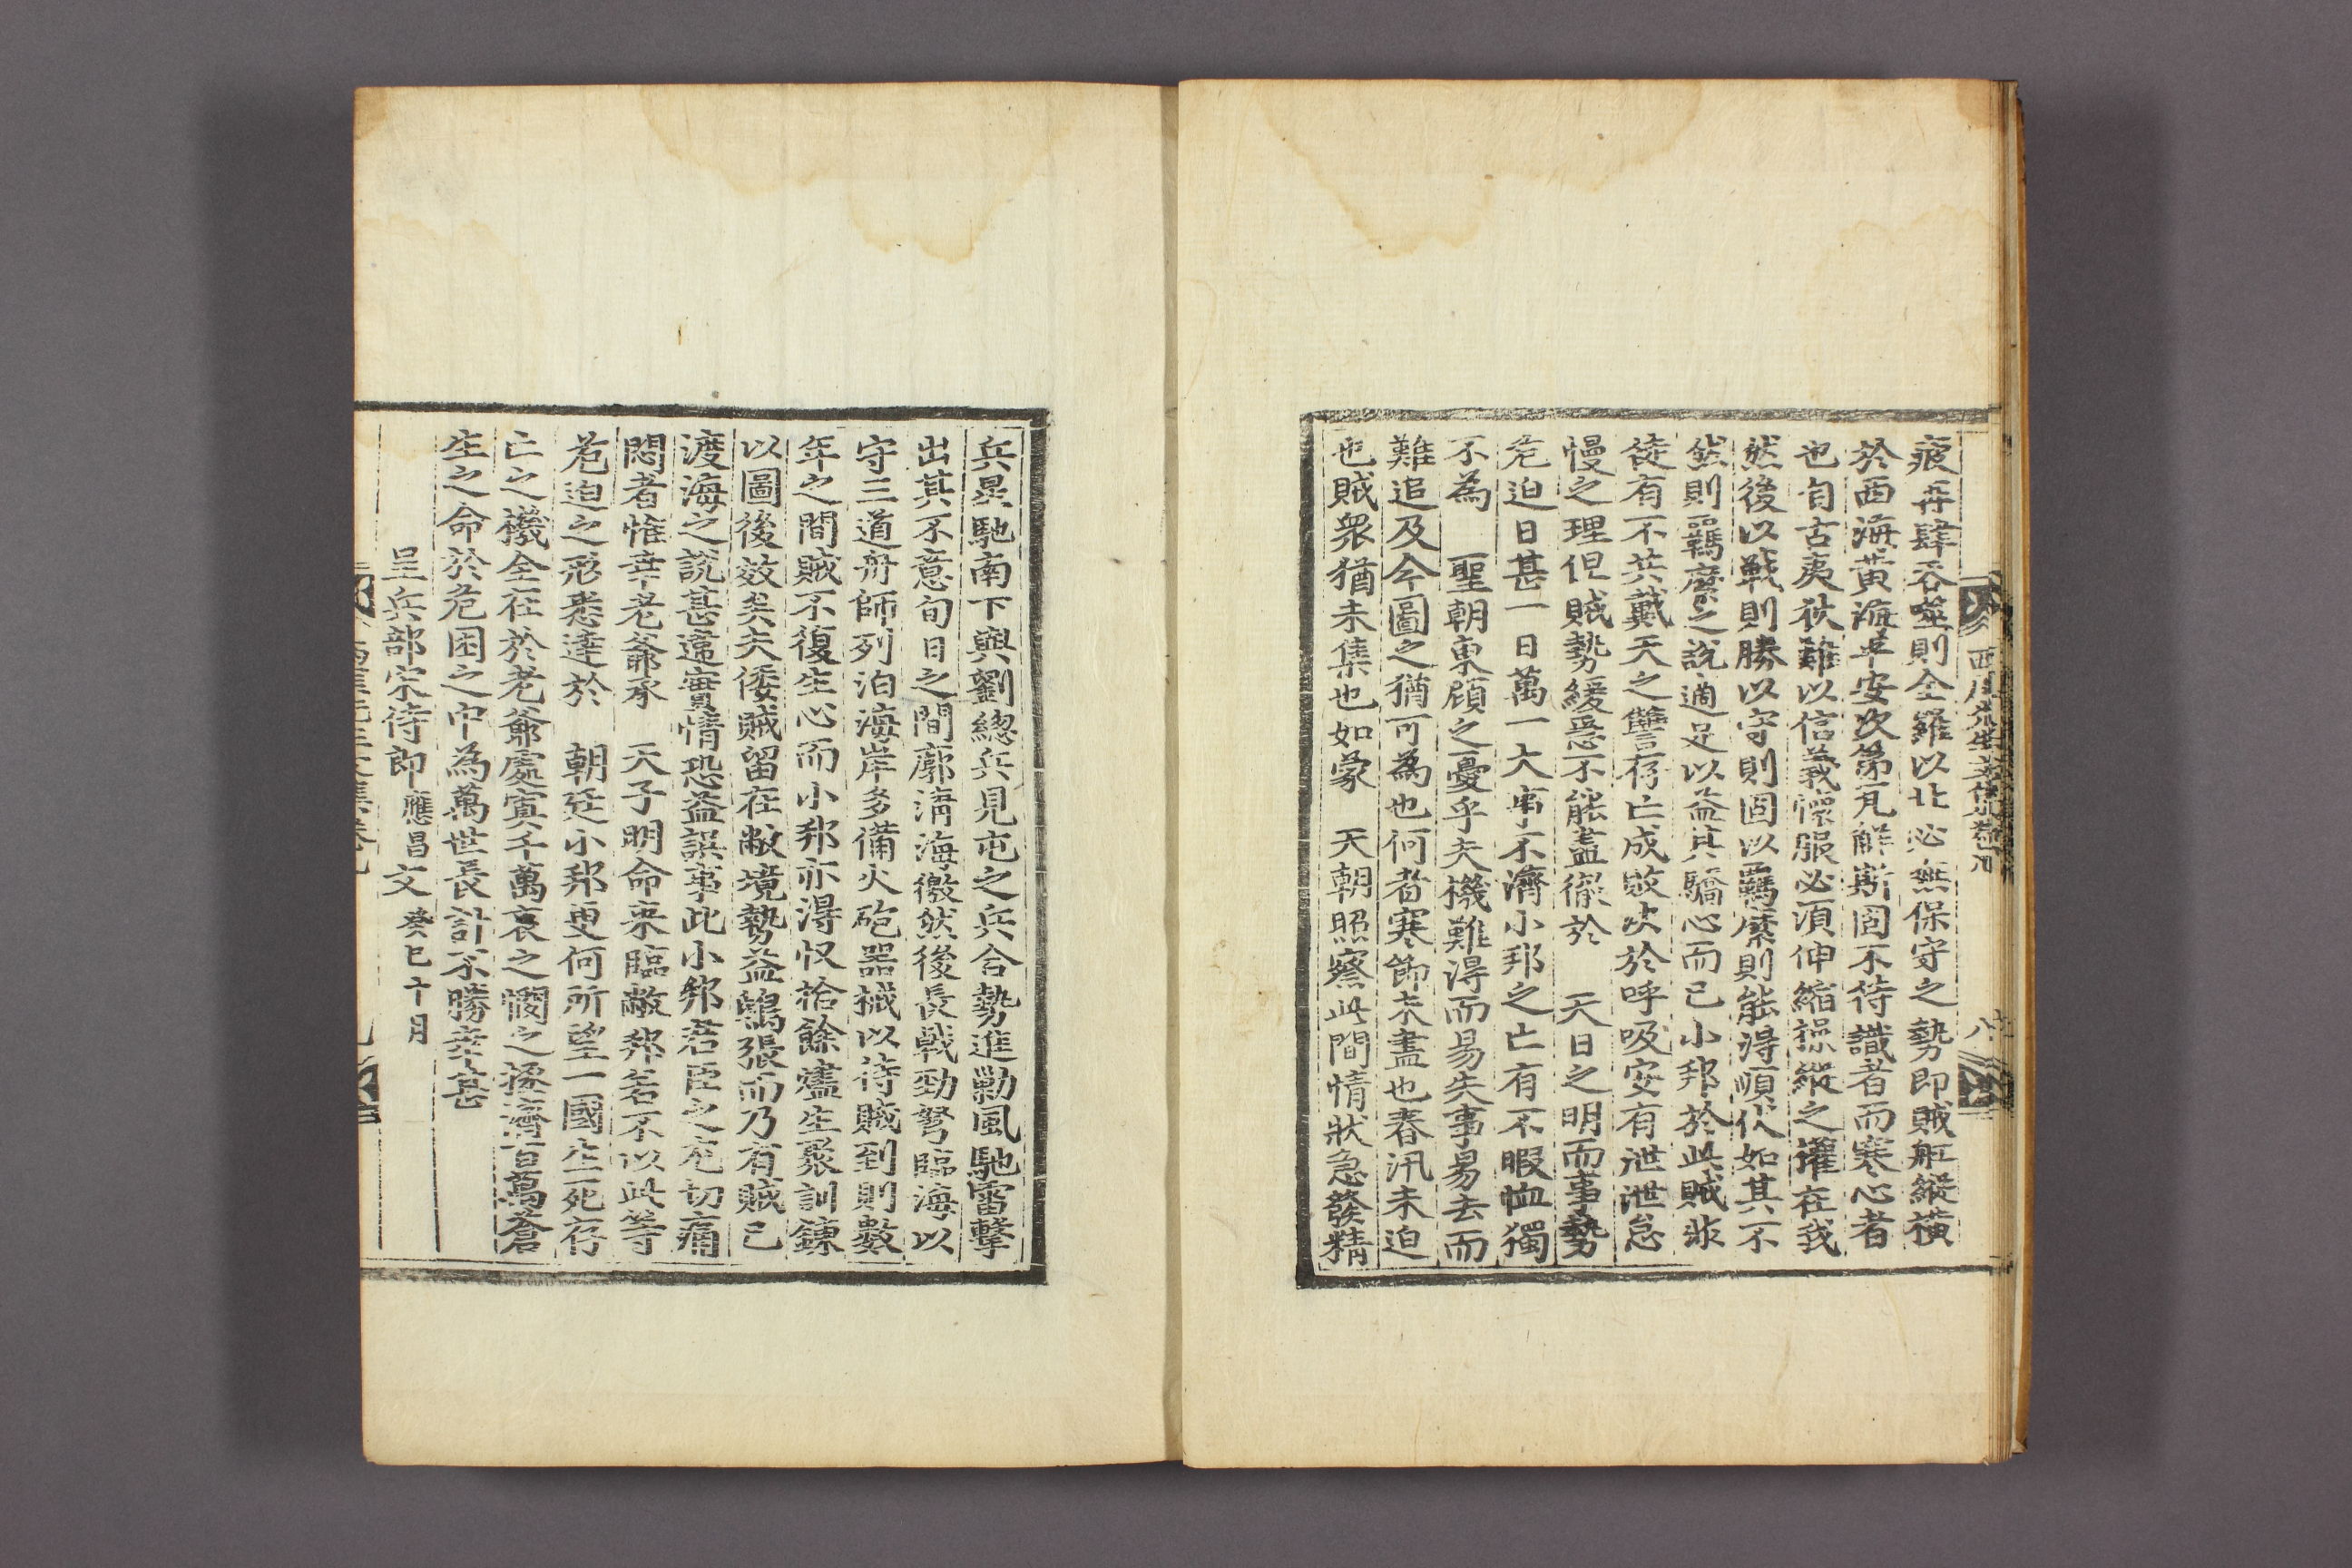 疲再肆吞噬則全羅以北必無保守之勢即賊舡縱橫
於西海黃海平安次第瓦解斯固不待識者而寒心者
也自古夷狄難以信義懷服必須伸縮操縱之權在我
然後以戰則勝以守則固以羈縻則能得順伏如其不
然則羈縻之說適足以益其驕心而已小邦於此賊非
徒有不共戴天之讐存亡成敗决於呼吸安有泄泄怠
慢之理但賊勢緩急不能盡徹於 天日之明而事勢
危迫日甚一日萬一大事不濟小邦之亡有不暇恤獨
不為 聖朝東顧之憂乎夫機難得而易失事易去而
難追及今圖之猶可為也何者寒節未盡也春汛未迫
也賊衆猶未集也如蒙 天朝照察此間情狀急發精
兵星馳南下與劉總兵見屯之兵合勢進勦風馳雷擊
出其不意旬日之間廓淸海徼然後長戟勁弩臨海以
守三道舟師列泊海岸多備火砲器械以待賊到則數
年之間賊不復生心而小邦亦得收拾餘燼生聚訓鍊
以圖後效矣夫倭賊留在敝境勢益鴟張而乃有賊已
渡海之說甚違實情恐益誤事此小邦君臣之尤切痛
悶者惟幸老爺承 天子明命來臨敝邦若不以此等
危迫之形悉達於 朝廷小邦更何所望一國生死存
亡之機全在於老爺處寘千萬哀之憫之拯濟百萬蒼
生之命於危困之中為萬世長計不勝幸甚
呈兵部宋侍郎應昌文癸巳十月